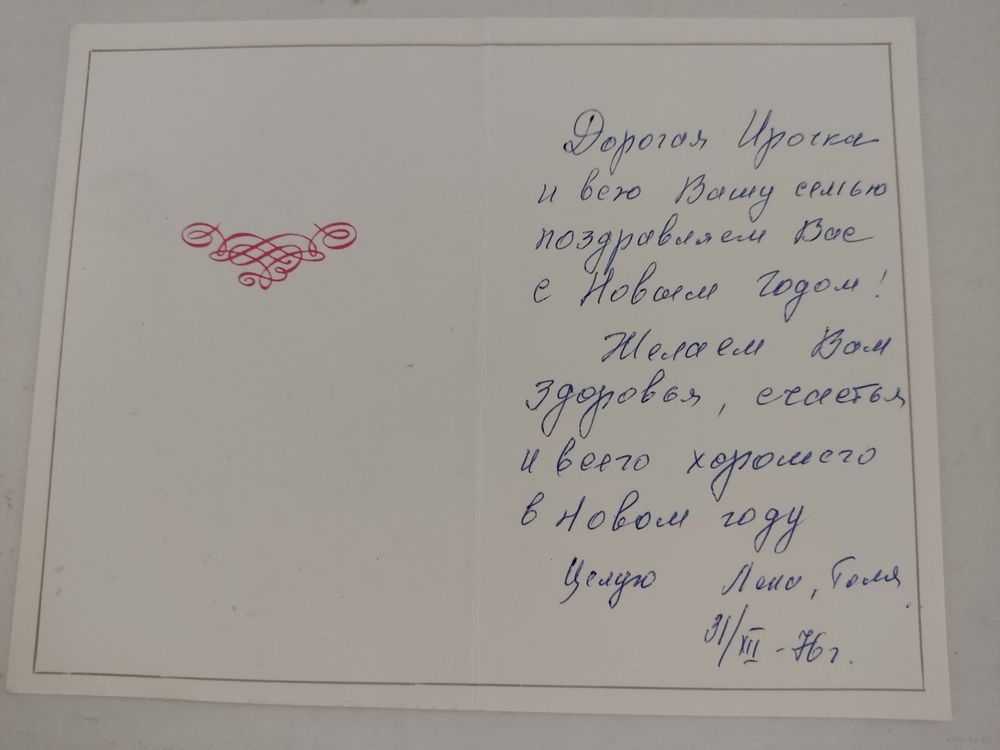 Дорогая Ирочка
и всю Вашу семью
поздравляем Вас
с Новым Годом!
Желаем Вам
здоровья, счастья
и всего хорошего
в Новом году
Целую Лена, Толя
31/XII - 76 г.